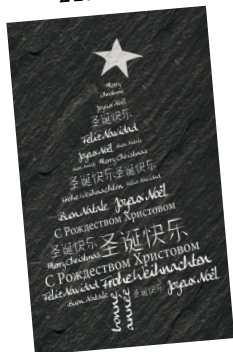 Merry
Christmas
Joyeux Noël
圣诞快乐
Feliz Navidad
Joyeux Noël
Merry Christmas
圣诞快乐圣诞快乐
Frohe Weihnachten
Buon Natale Joyeux Noël
С Рождеством Христовом
圣诞快乐 圣诞快乐
Merry Christmas
С Рождеством Христовом
Feliz Navidad Frohe Weihnachten
Buon Natale 圣诞快乐 Joyeux Noël
bonne
année